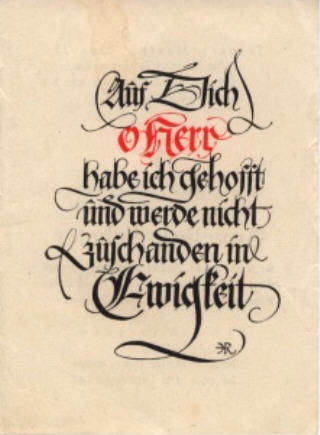 Auf Dich
o Herr
habe ich gehofft
und werde nicht
zuschanden in
Ewigkeit